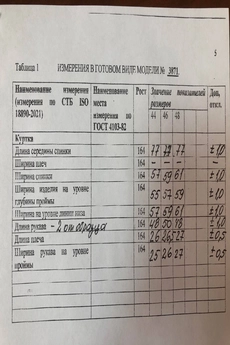 5
Таблица 1 ИЗМЕРЕНИЯ В ГОТОВОМ ВИДЕ МОДЕЛИ № 3871
Наименование измерения (измерения по СТБ ISO 18890-2021) Наименование места измерения по ГОСТ 4103-82 Рост Значение показателей размеров Доп. откл.
44 46 48
Куртка
Длина середины спинки 164 77 77 77 ±1,0
Ширина плеч 164 – – – –
Ширина спинки 164 57 59 61 ±1,0
Ширина изделия на уровне глубины проймы 164 55 57 59 ±1,0
Ширина на уровне линии низа 164 57 59 61 ±1,0
Длина рукава – 2 от образца 164 48 50 48 ±1,0
Длина плеча 164 26 26,5 27 ±0,5
Ширина рукава на уровне проймы 164 25 26 27 ±0,5